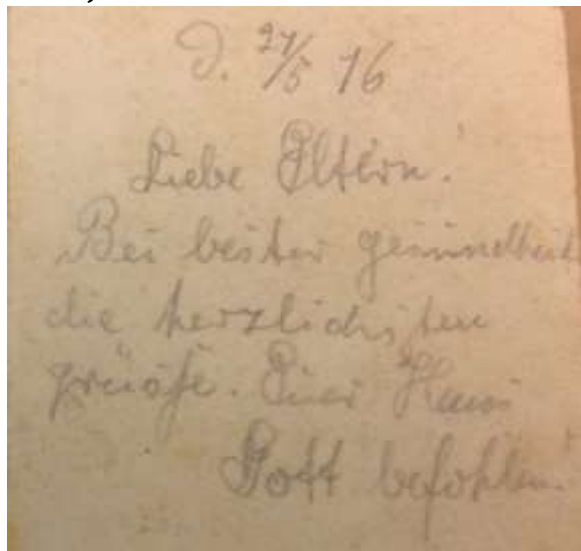 D. 27/5 16
Liebe Eltern.
Bei bester gesundheit
die herzlichsten
grüsse. Euer Hans
Gott befohlen.